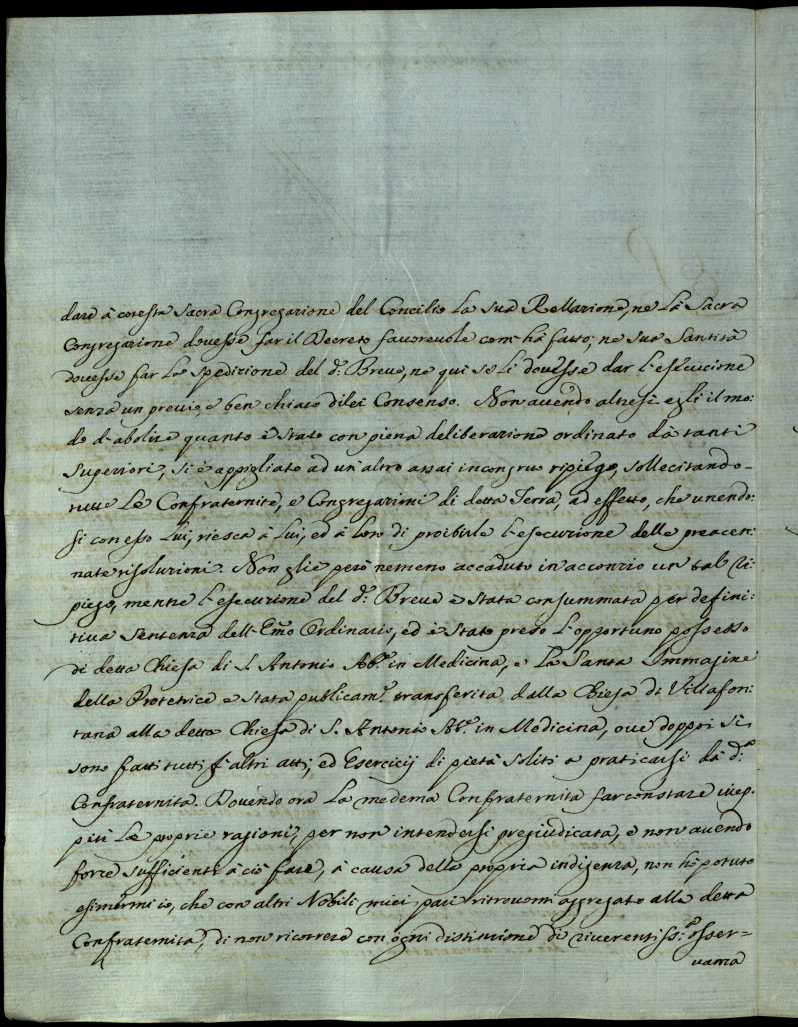 dare à cotesta Sacra Congregazione del Concilio La sua Rellazione, ne La Sacra
Congregazione dovesse far il Decreto favorevole com' hà fatto; ne Sua Santità
dovesse far La Spedizione del d.º Breve, ne qui se li dovesse dar l'esecucione
senza un previo, e ben chiaro di lei Consenso. Non avendo altresi egli il mo:
do d'abolire quanto è Stato con piena deliberazione ordinato dà tanti
Superiori, Si è appigliato ad un' altro assai incongruo ripiego, sollecitando
tutte Le Confraternite, e Congregazioni di detta Terra, ad effetto, che unendo:
si con esso Lui, riesca à Lui, ed à Loro di proibirle l'esecuzione delle preacen:
nate risoluzioni. Non glie però nemeno accaduto in acconzio un tal ri:
piego, mentre l'esecuzione del d.º Breve è Stata consummata per defini:
tiva Sentenza dell' Emo Ordinario, ed è Stato preso l'opportuno possesso
di detta Chiesa di S. Antonio Ab.e in Medicina, e La Santa Immagine
della Protetrice è Stata publicam.e transferita dalla Chiesa di Villafon:
tana alla detta Chiesa di S. Antonio Ab.e in Medicina, ove doppoi si
sono fatti tutti gl'altri atti, ed Esercicij di pietà Soliti a praticarsi dà d.ª
Confraternita. Dovendo ora La medema Confraternita far constare viep:
più Le proprie ragioni, per non intendersi pregiudicata, e non avendo
forze Sufficienti à ciò fare, à causa della propria indigenza, non hò potuto
esimermi io, che con altri Nobili miei pari ritrovomi aggregato alla detta
Confraternita, di non ricorrere con ogni distinzione di riverentiss.ª osser=
vanza